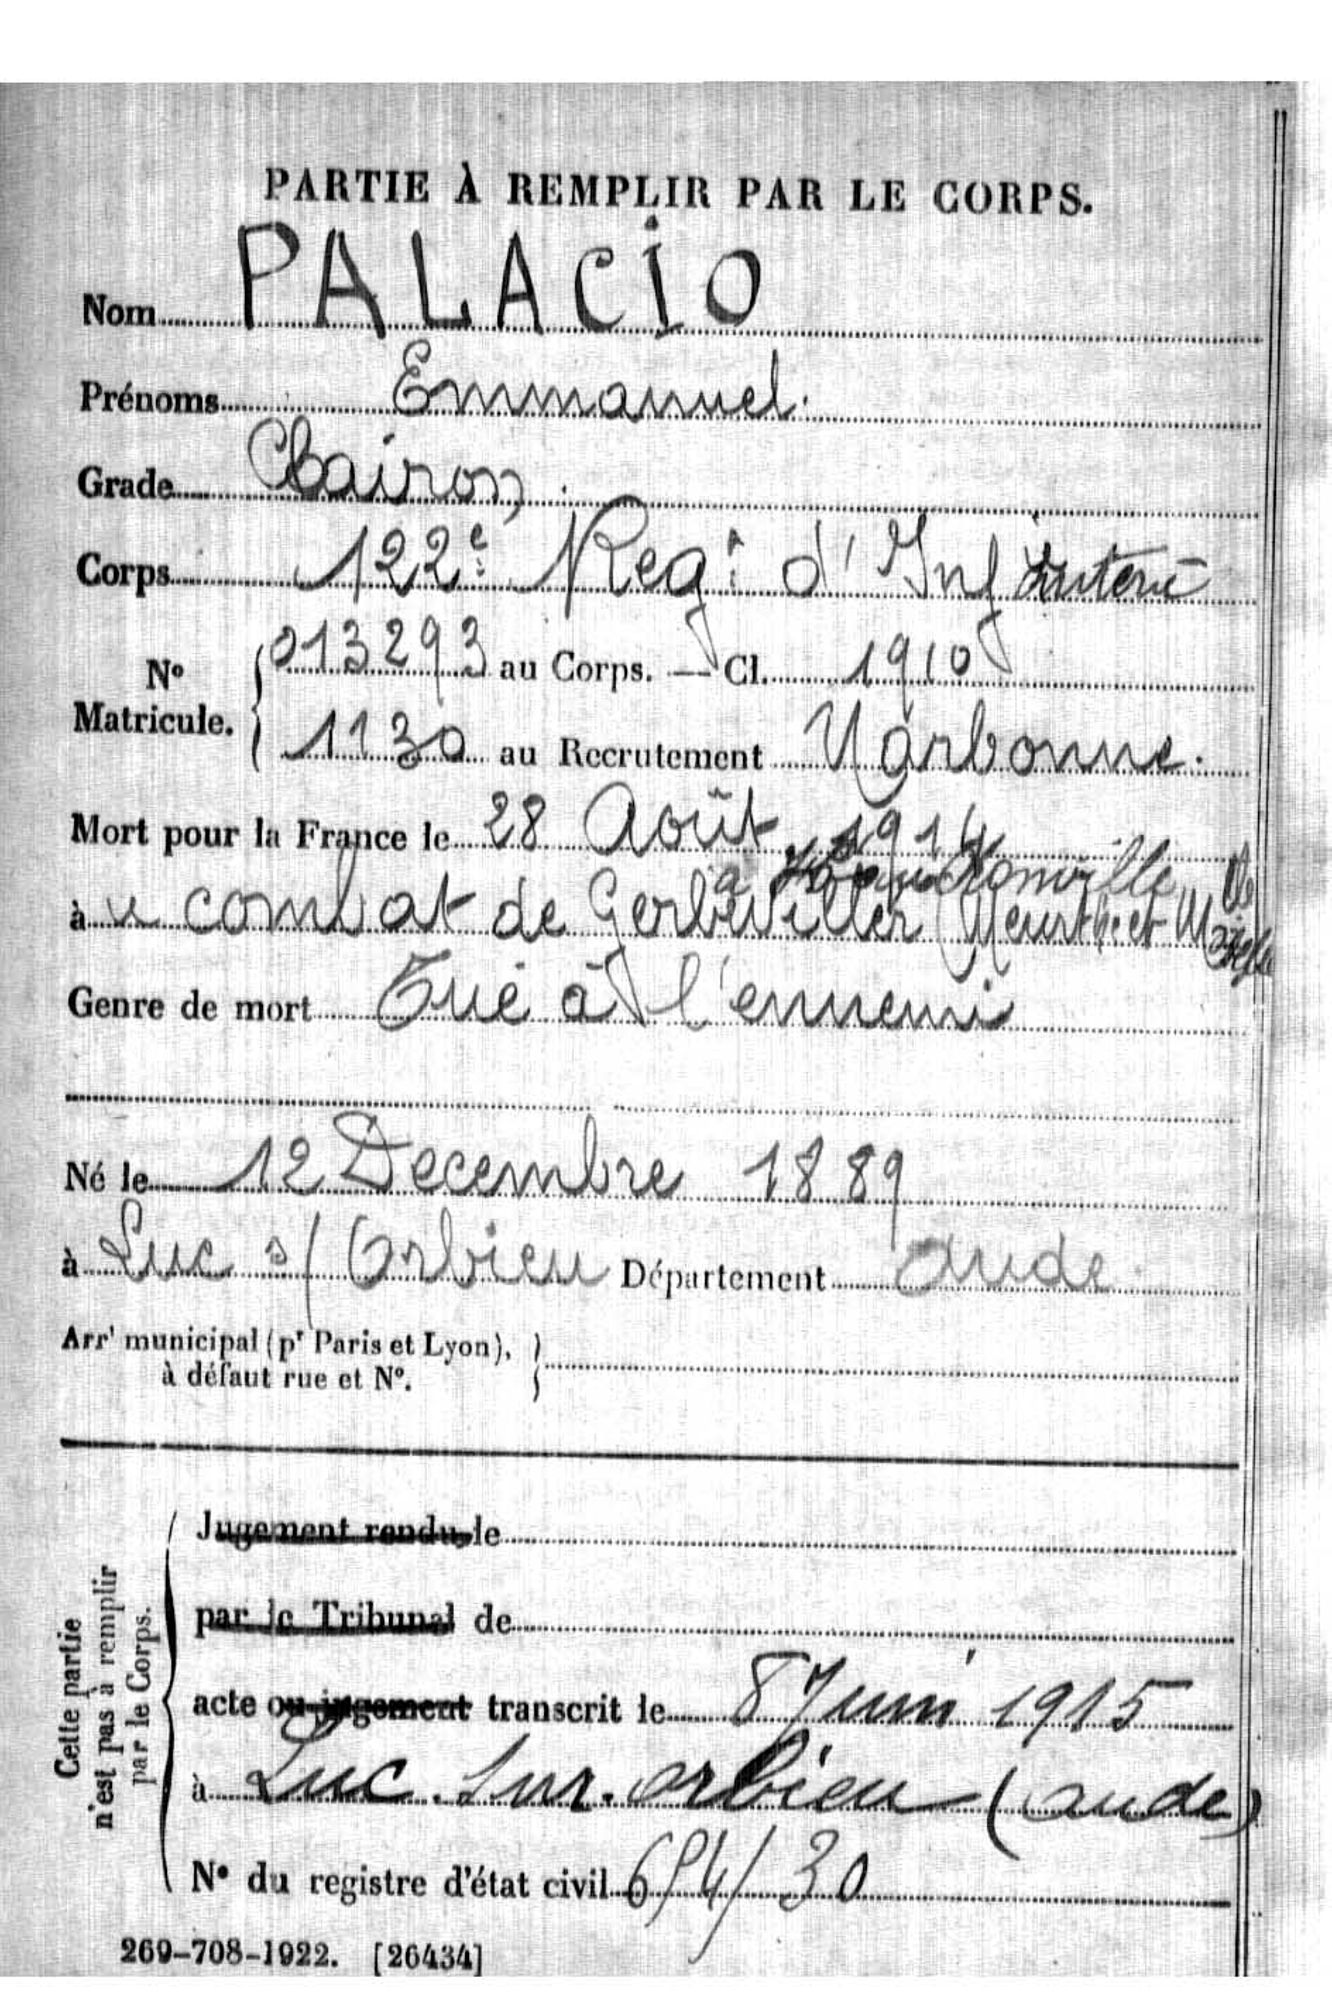 PARTIE À REMPLIR PAR LE CORPS.
Nom PALACIO
Prénoms Emmanuel.
Grade Clairon
Corps 122e Regt d'Infanterie
No Matricule. 013293 au Corps. — Cl. 1910
1130 au Recrutement Narbonne.
Mort pour la France le 28 Août 1914
à
à u combat de Gerbéviller (Meurthe et Mozelle
Genre de mort Tué à l'ennemi
Né le 12 Decembre 1889
à Luc s/ Orbieu Département Aude.
Arrt municipal (pr Paris et Lyon),
à défaut rue et No.
Cette partie n'est pas à remplir par le Corps.
Jugement rendu le
par le Tribunal de
acte ou jugement transcrit le 8 Juin 1915
à Luc. Sur. orbieu (aude)
No du registre d'état civil
269-708-1922. [26434]